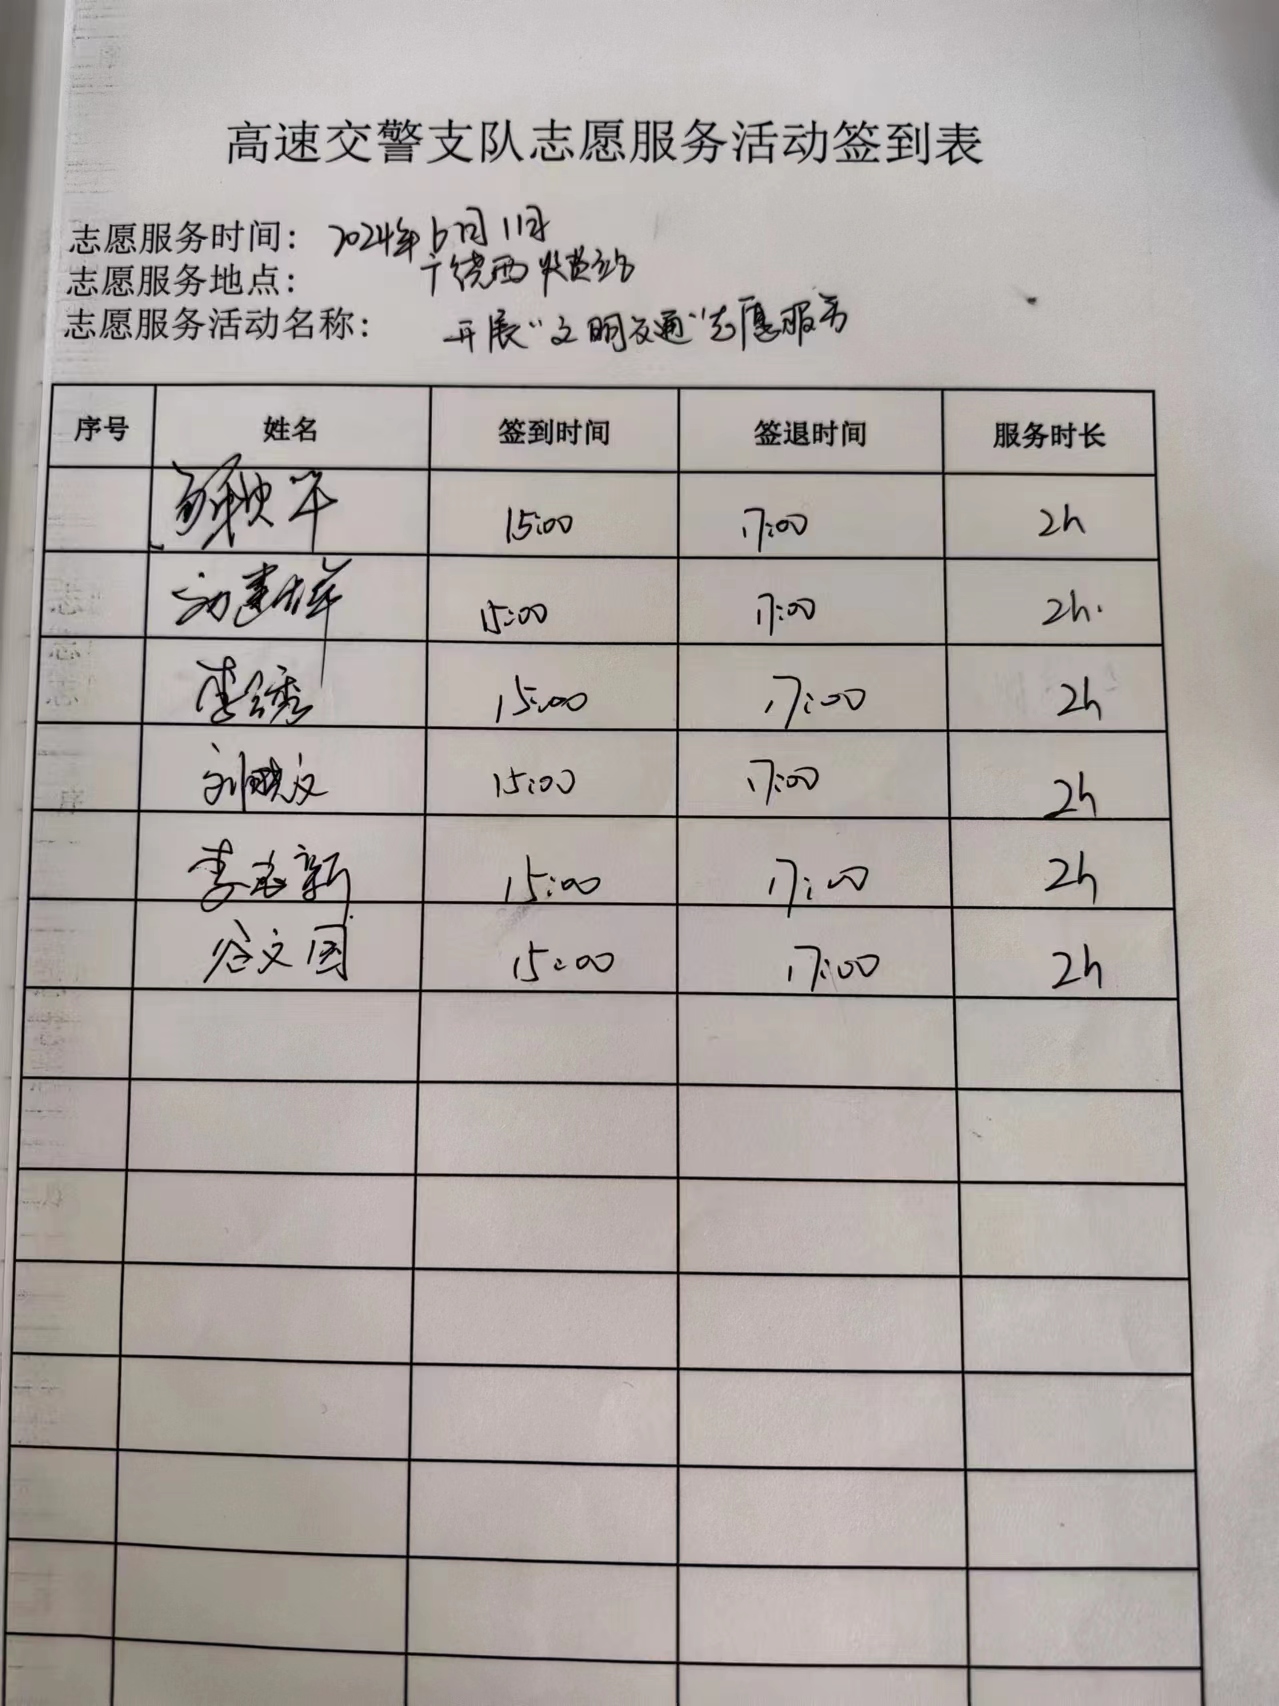 高速交警支队志愿服务活动签到表
志愿服务时间： 2024年6月11日
志愿服务地点： 广饶西收费站
志愿服务活动名称： 开展“文明交通”志愿服务
序号 姓名 签到时间 签退时间 服务时长
15:00 17:00 2h
15:00 17:00 2h.
李秀 15:00 17:00 2h
刘晓文 15:00 17:00 2h
李 新 15:00 17:00 2h
谷文国 15:00 17:00 2h